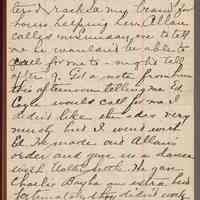 ters & racked my brain for
hours helping her. Allan
called on Sunday, me to tell
me he wouldn't be able to
call for me to-night till
after 9. Got a note from him
this afternoon telling me Ed
would call for me. I
didn't like the idea very
much but I went with
Ed. He made out Allan's
order and give us a dance
with He gave
Charlie an extra but
fortunately she didn't